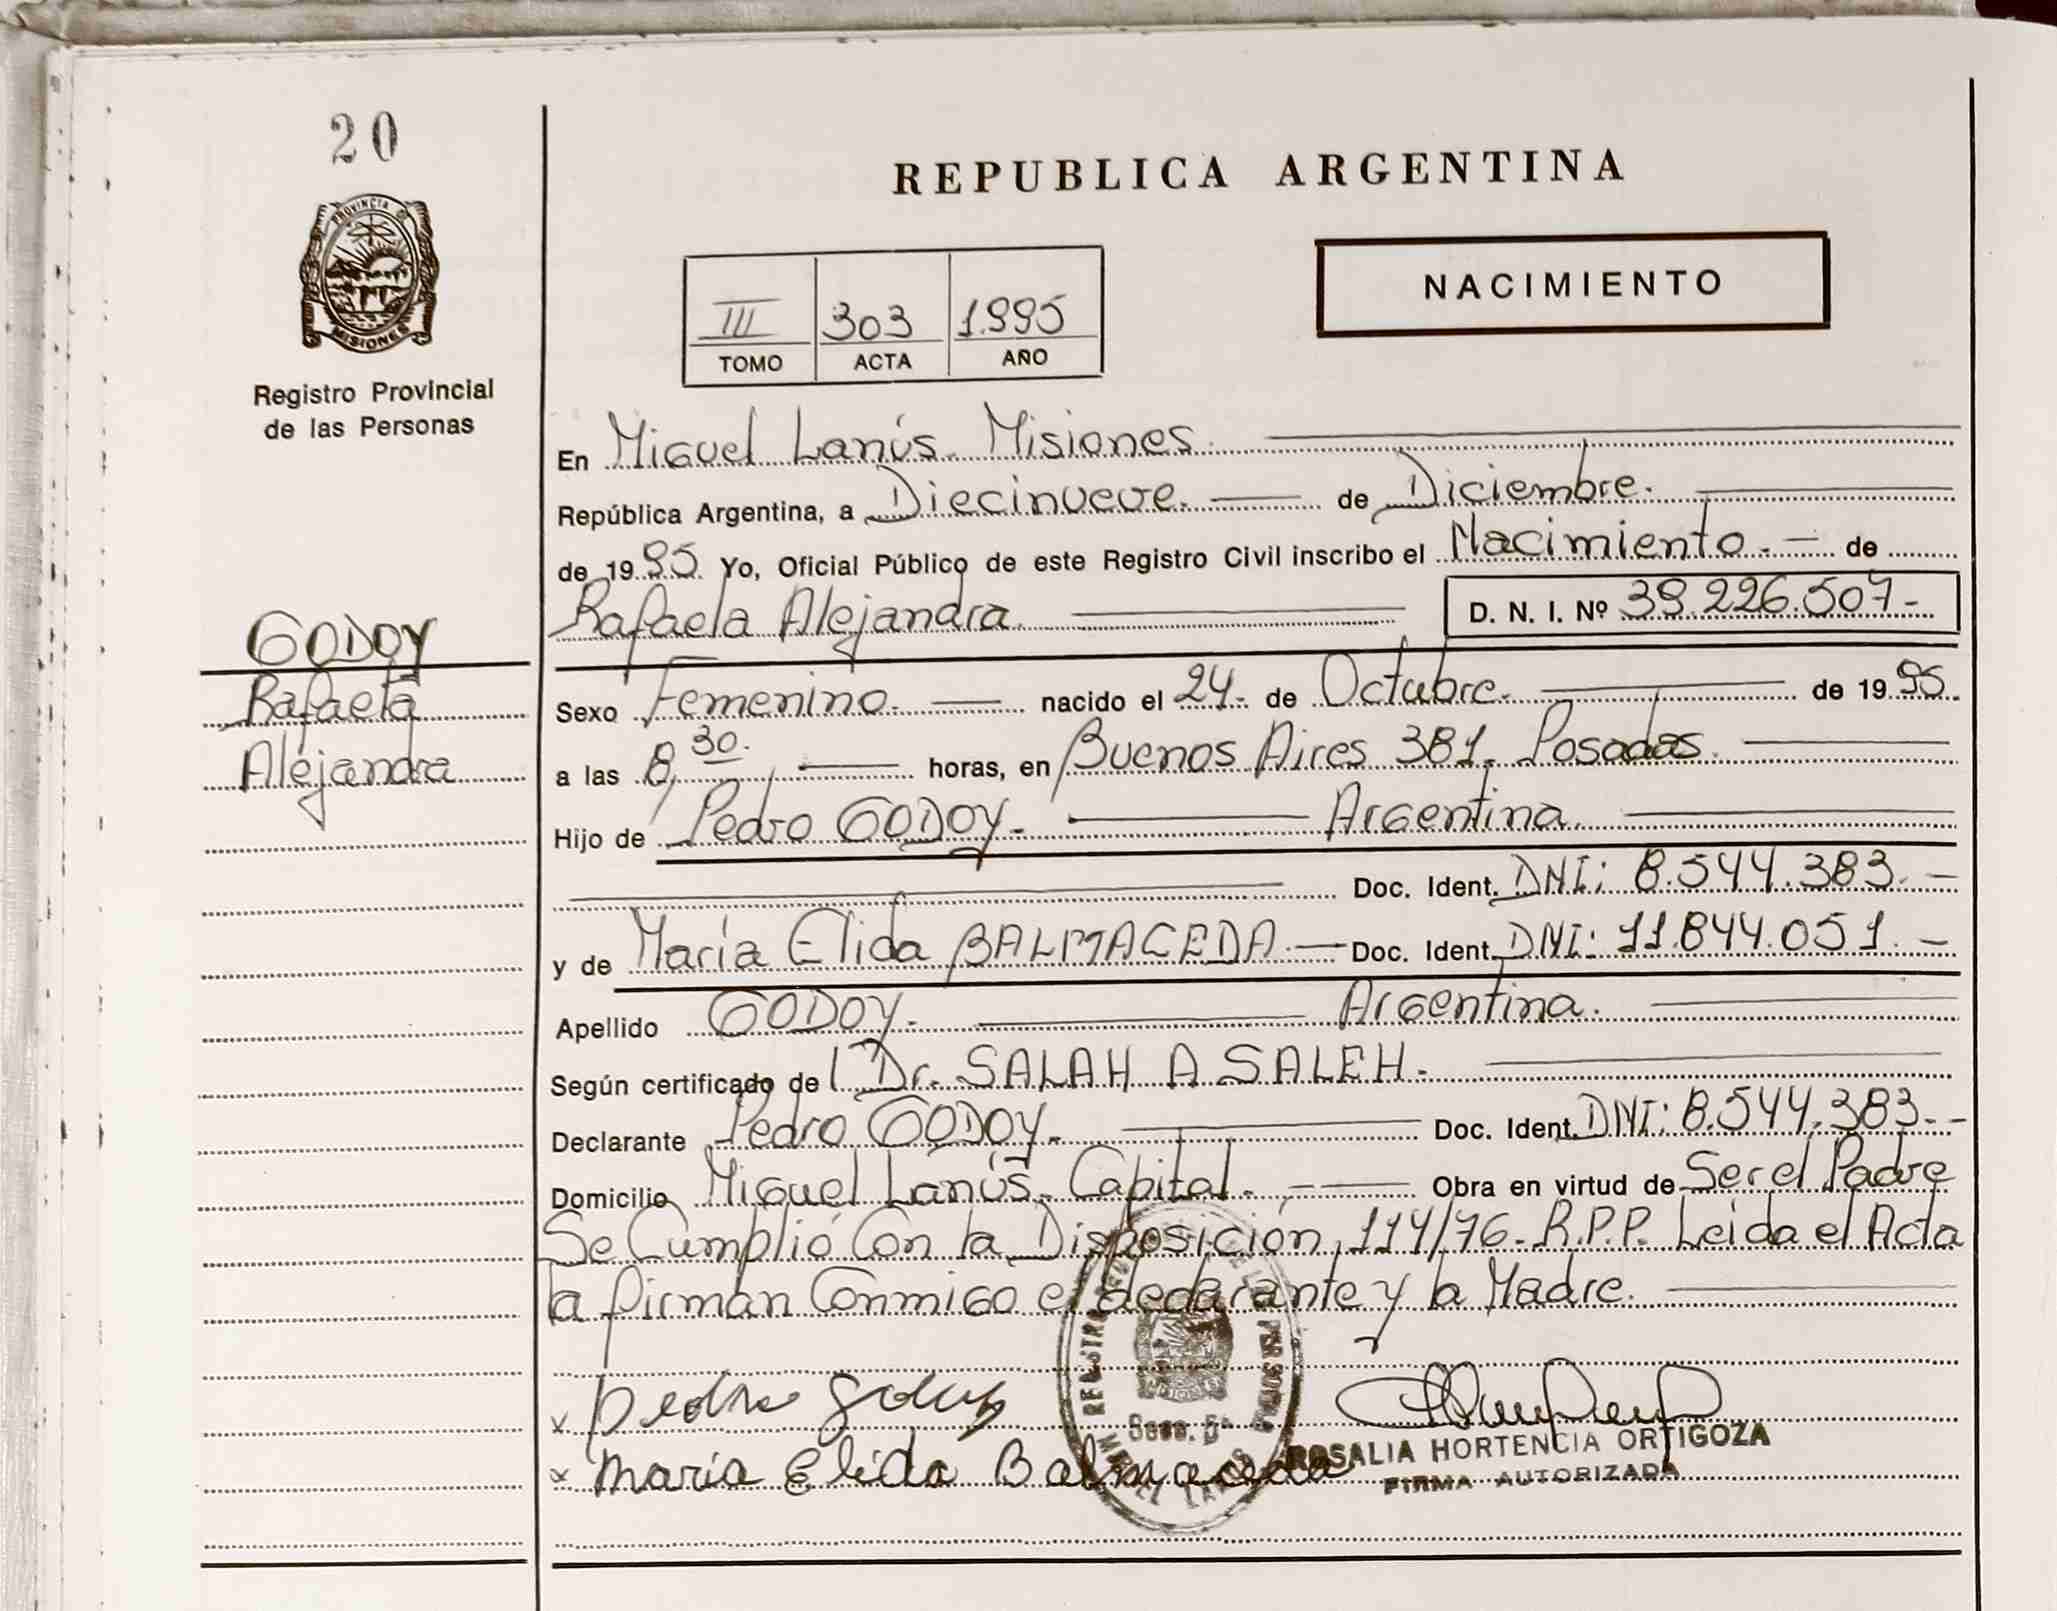 20
PROVINCIA DE
MISIONES
Registro Provincial
de las Personas
REPUBLICA ARGENTINA
NACIMIENTO
III 303 1.995
TOMO ACTA AÑO
En Miguel Lanús. Misiones.
República Argentina, a Diecinueve. de Diciembre.
de 1995. Yo, Oficial Público de este Registro Civil inscribo el Nacimiento. - de
Rafaela Alejandra. D. N. I. Nº 39.226.507-
GODOY
Rafaela
Alejandra
Sexo Femenino. nacido el 24. de Octubre. de 1995.
a las 8,30. horas, en Buenos Aires 381. Posadas.
Hijo de Pedro GODOY. Argentina.
Doc. Ident. DNI: 8.544.383. -
y de María Elida BALMACEDA. - Doc. Ident. DNI: 11.844.051. -
Apellido GODOY. Argentina.
Según certificado de Dr. SALAH A SALEH.
Declarante Pedro GODOY. Doc. Ident. DNI: 8.544.383. -
Domicilio Miguel Lanús. Capital. Obra en virtud de Ser el Padre
Se Cumplió Con la Disposición 114/76. R.P.P. Leida el Acta
la firman Conmigo el declarante y la Madre.
x pedro godoy
ROSALIA HORTENCIA ORTIGOZA
x maria Elida Balmaceda
FIRMA AUTORIZADA